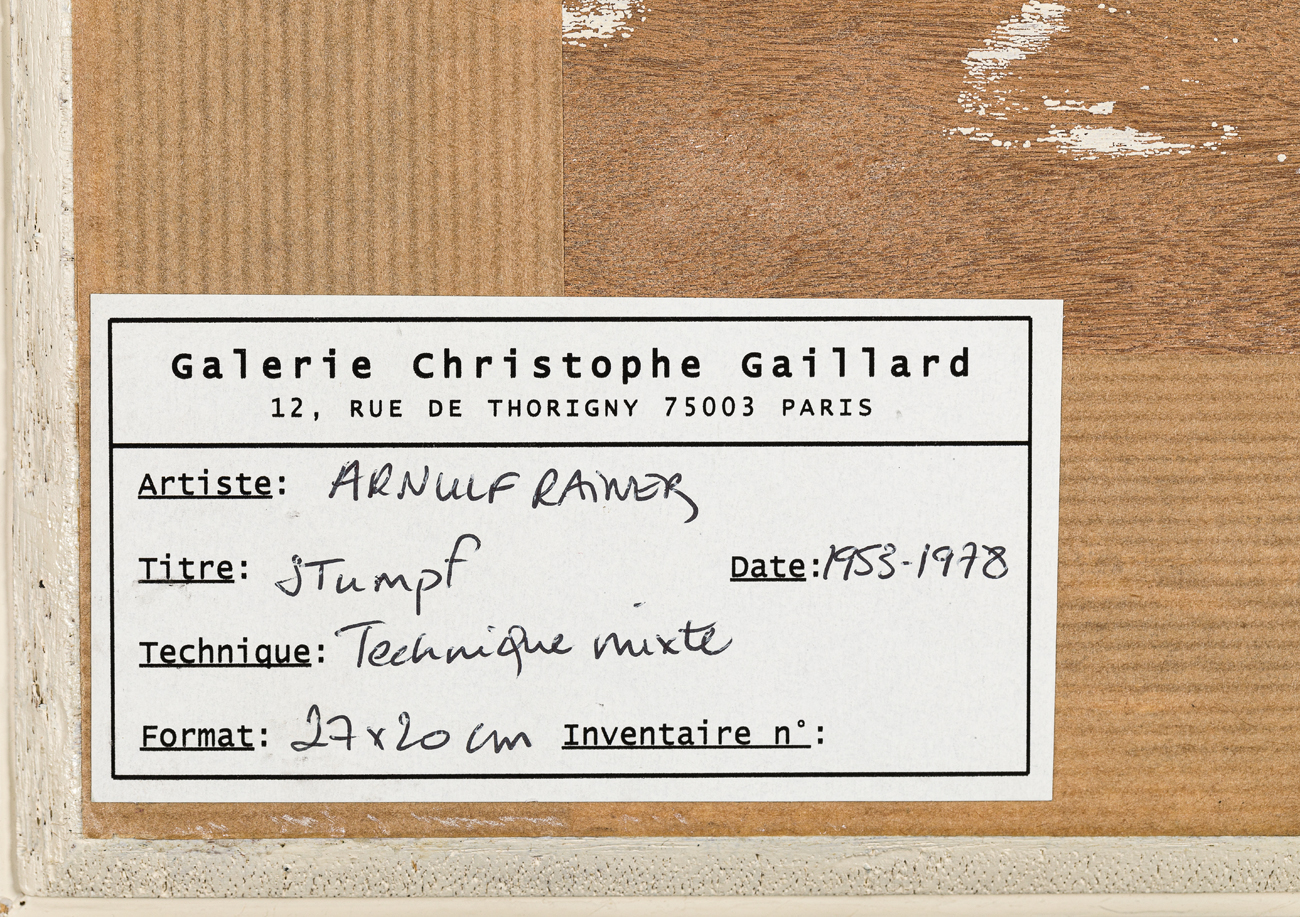 Galerie Christophe Gaillard
12, RUE DE THORIGNY 75003 PARIS
Artiste: ARNULF RAINER
Titre: STumpf Date: 1953-1978
Technique: Technique mixte
Format: 27x20 cm Inventaire n°: